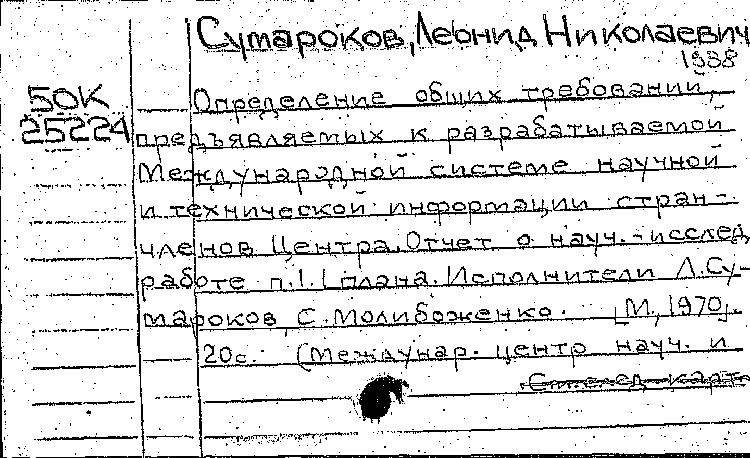 Сумароков, Леонид Николаевич
1938
50К
25224
Определение общих требований,
предъявляемых к разрабатываемой
Международной системе научной
и технической информации стран-
членов Центра. Отчет о науч.-исслед
работе п.1.1 плана. Исполнители Л.Су-
мароков, С.Молибоженко. [М., 1970].
20с. (Междунар. центр науч. и
См.след карт